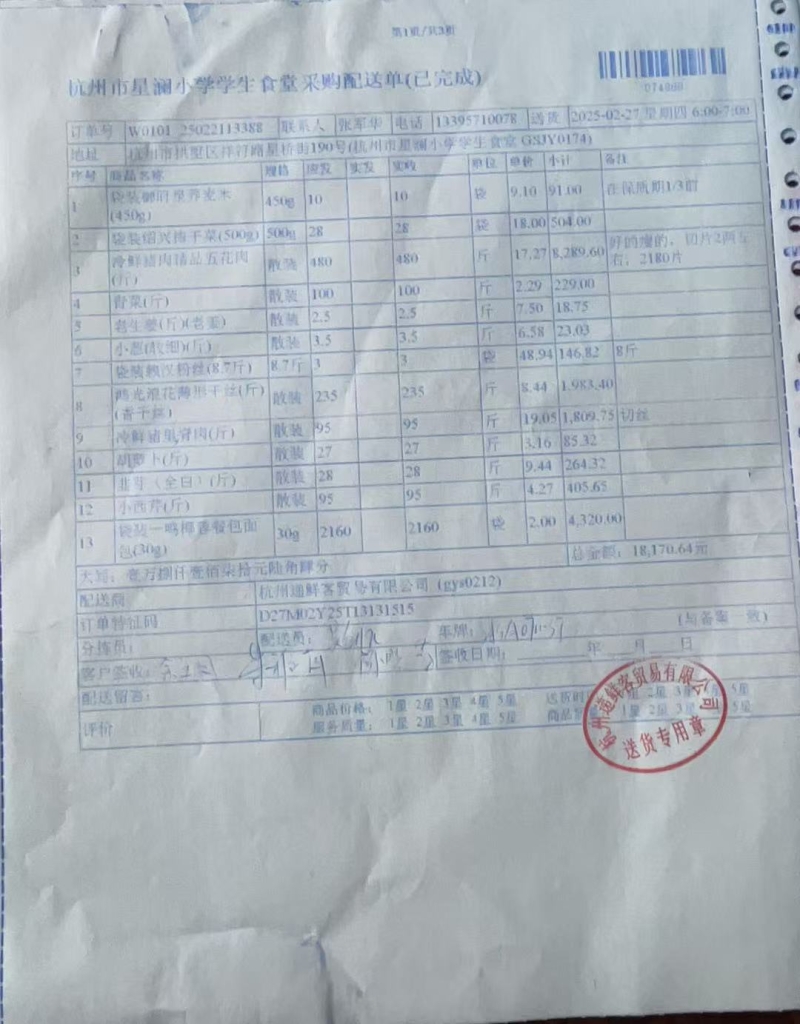 第1页/共3页
杭州市星澜小学学生食堂采购配送单(已完成)
订单号 W0101_25022113388 联系人 张军华 电话 13395710078 送货 2025-02-27 星期四 6:00-7:00
地址 杭州市拱墅区祥 路星桥街190号(杭州市星澜小学学生食堂 GSJY0174)
序号 商品名称 规格 应发 实发 实收 单位 单价 小计 备注
1 袋装 荞麦米(450g) 450g 10 10 袋 9.10 91.00 在保质期1/3前
2 袋装绍兴梅干菜(500g) 500g 28 28 袋 18.00 504.00
3 冷鲜猪肉精品五花肉(斤) 散装 480 480 斤 17.27 8,289.60 好的瘦的，切片2两左右，2180片
4 青菜(斤) 散装 100 100 斤 2.29 229.00
5 老生姜(斤)(老姜) 散装 2.5 2.5 斤 7.50 18.75
6 小葱(散细)(斤) 散装 3.5 3.5 斤 6.58 23.03
7 袋装 粉丝(8.7斤) 8.7斤 3 3 袋 48.94 146.82 8斤
8 干丝(斤)(香干丝) 散装 235 235 斤 8.44 1,983.40
9 冷鲜猪里脊肉(斤) 散装 95 95 斤 19.05 1,809.75 切丝
10 胡萝卜(斤) 散装 27 27 斤 3.16 85.32
11 (全白)(斤) 散装 28 28 斤 9.44 264.32
12 小西芹(斤) 散装 95 95 斤 4.27 405.65
13 袋装一鸣 餐包面包(30g) 30g 2160 2160 袋 2.00 4,320.00
大写：壹万捌仟壹佰柒拾元陆角肆分 总金额：18,170.64元
配送商 杭州通鲜客贸易有限公司 (gys0212)
订单特征码 D27M02Y25T13131515
分拣员： 配送员： 车牌： (与备案一致)
客户签收： 签收日期： 年 月 日
配送留言：
评价 商品价格： 1星 2星 3星 4星 5星 送货时 1星 2星 3星 5星
服务质量： 1星 2星 3星 4星 5星 商品 1星 2星 3星 5星
杭州通鲜客贸易有限公司
送货专用章